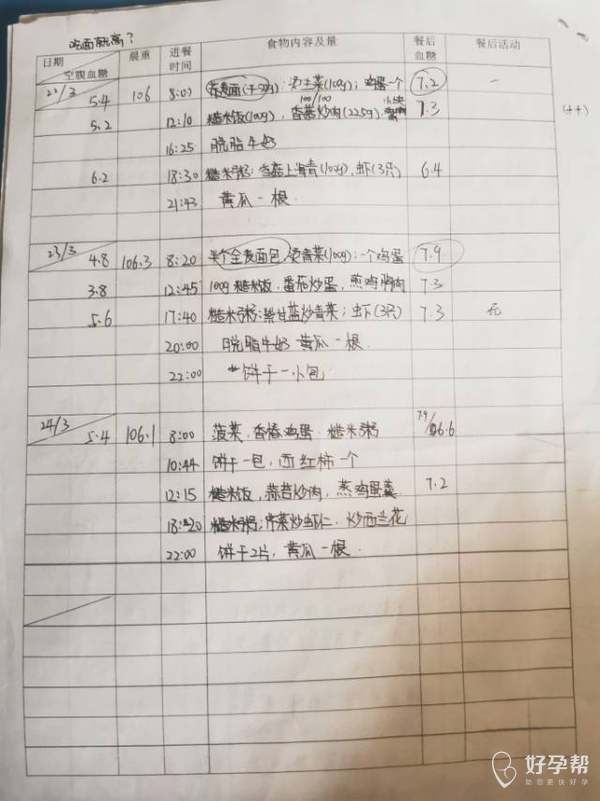 吃面就高？
日期 空腹血糖 晨重 进餐时间 食物内容及量 餐后血糖 餐后活动
22/3 5.4 106 8:00 荞麦面(干50g)；烫生菜(100g)；鸡蛋一个 7.2 —
5.2 12:10 糙米饭(100g)，香菇炒肉(225g) 7.3 (++)
100/100
16:25 脱脂牛奶
6.2 18:30 糙米粥；香菇上海青(100g)，虾(3只) 6.4
21:43 黄瓜一根
23/3 4.8 106.3 8:20 半个全麦面包，烫青菜(100g)；一个鸡蛋 7.9
3.8 12:45 100g糙米饭，番茄炒蛋，蒸鸡胸肉 7.3
5.6 17:40 糙米粥；紫甘蓝炒青菜；虾(3只) 7.3 无
20:00 脱脂牛奶 黄瓜一根
22:00 饼干一小包
24/3 5.4 106.1 8:00 菠菜，香椿鸡蛋 糙米粥 7.9/6.6
10:44 饼干一包，西红柿一个
12:15 糙米饭，蒜苔炒肉，蒸鸡蛋羹 7.2
18:20 糙米粥；芹菜炒虾仁，炒西兰花
22:00 饼干2片，黄瓜一根
好孕帮
助您更快好孕